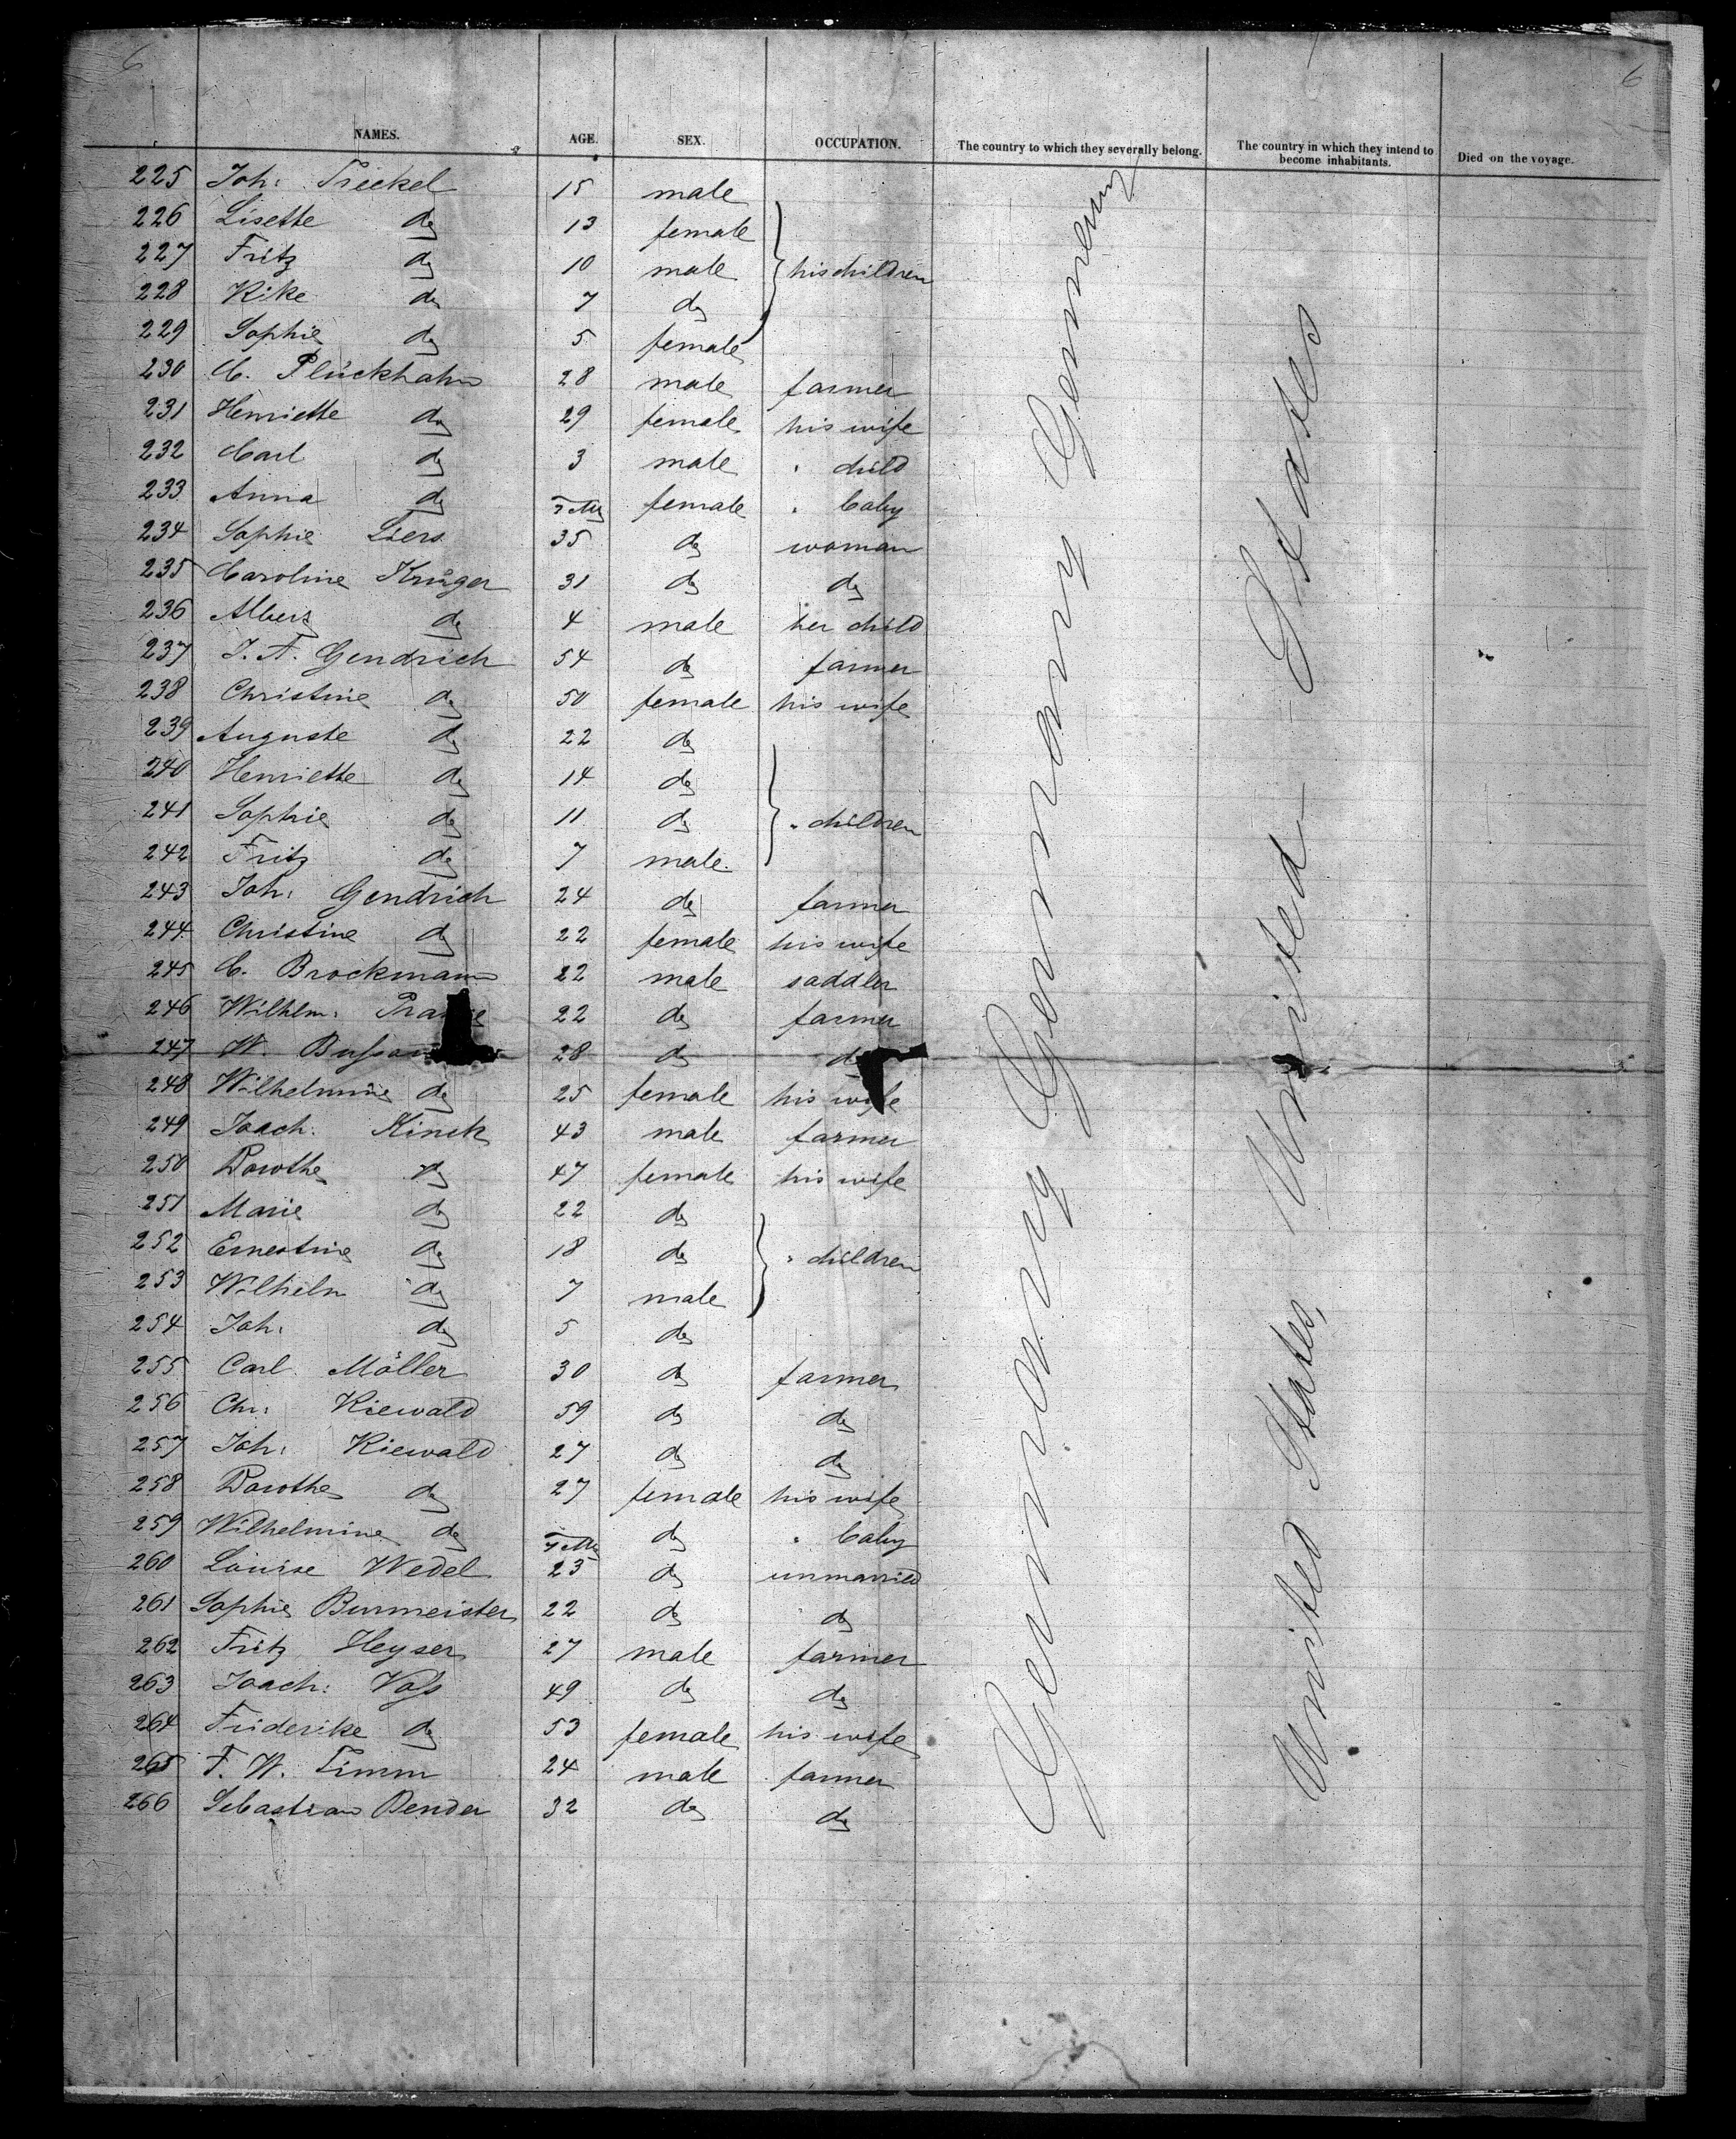 6 6
NAMES. AGE. SEX. OCCUPATION. The country to which they severally belong. The country in which they intend to become inhabitants. Died on the voyage.
225 Joh: Treckel 15 male
226 Lisette do 13 female
227 Fritz do 10 male his children
228 Rike do 7 do
229 Sophie do 5 female
230 C. Plückhahn 28 male farmer
231 Henriette do 29 female his wife
232 Carl do 3 male " child
233 Anna do female " baby
234 Sophie Liers 35 do woman
235 Caroline Krüger 31 do do
236 Albert do 4 male her child
237 J. A. Gendrich 54 do farmer
238 Christine do 50 female his wife
239 Auguste do 22 do
240 Henriette do 14 do
241 Sophie do 11 do " children
242 Fritz do 7 male
243 Joh: Gendrich 24 do farmer
244 Christine do 22 female his wife
245 C. Brockmann 22 male saddler
246 Wilhlm: 22 do farmer
247 W. 28 do do
248 Wilhelmine do 25 female his wife
249 Joach: Kinck 43 male farmer
250 Dorothe do 47 female his wife
251 Marie do 22 do
252 Ernestine do 18 do " children
253 Wilhelm do 7 male
254 Joh: do 5 do
255 Carl Möller 30 do farmer
256 Chr: Kiewald 59 do do
257 Joh: Kiewald 27 do do
258 Dorothe do 27 female his wife
259 Wilhelmine do do " baby
260 Louise Wedel 23 do unmarried
261 Sophie Burmeister 22 do do
262 Fritz Heyser 27 male farmer
263 Joach: Voß 49 do do
264 Friderike do 53 female his wife
265 F. W. Timm 24 male farmer
266 Sebastian Bender 32 do do
Germany Germany Germany
United States, United States